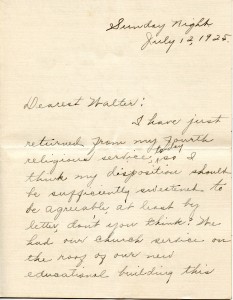 Sunday Night
July 12, 1925.
Dearest Walter:
I have just
returned from my fourth
religious service, today so I
think my disposition should
be sufficiently sweetened to
be agreeable, at least by
letter, don't you think? We
had our church service on
the roof of our new
educational building this